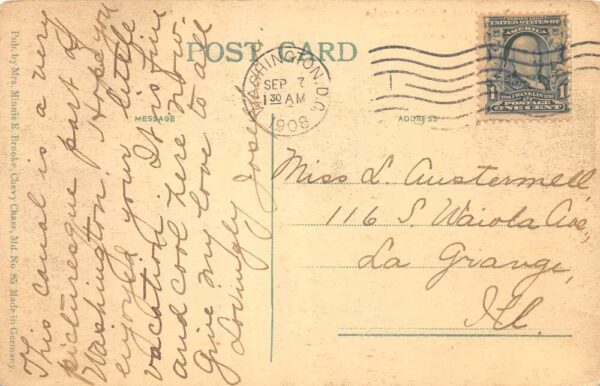 Pub. by Mrs. Minnie E. Brooke, Chevy Chase, Md. No 85 Made in Germany
POST CARD
MESSAGE
This canal is a very
picturesque part of
Washington. Hope you
enjoyed your little
vacation. It is fine
and cool here now.
Give my love to all
Lovingly Joseph
WASHINGTON, D.C.
SEP 7
1 30 AM
1908
UNITED STATES OF
AMERICA
1 1
FRANKLIN
POSTAGE
ONE CENT
ADDRESS
Miss L. Austermell
116 S. Waiola Ave,
La Grange,
Ill.